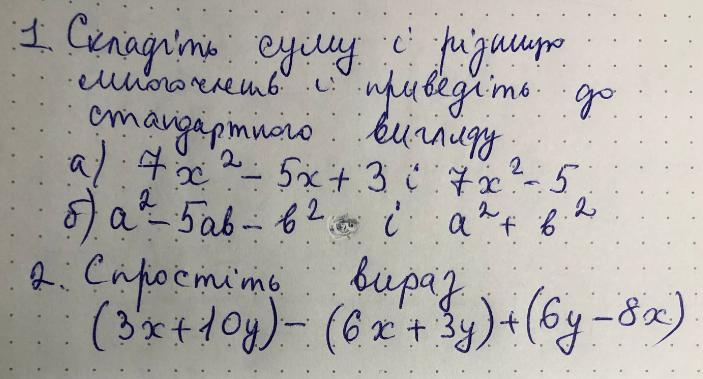 1. Складіть суму і різницю
многочленів і приведіть до
стандартного вигляду
а) 7x² - 5x + 3 і 7x² - 5
б) a² - 5ab - b² і a² + b²
2. Спростіть вираз
(3x + 10y) - (6x + 3y) + (6y - 8x)